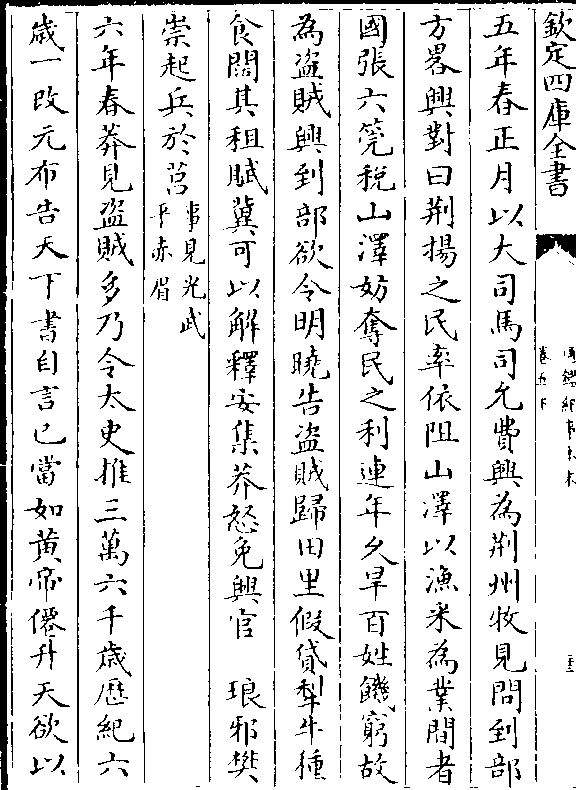 欽定四庫全書
五年春正月以大司馬司允費興為荆州牧見問到部
方畧興對曰荆揚之民率依阻山澤以漁采為業間者
國張六筦稅山澤妨奪民之利連年久旱百姓饑窮故
為盜賊興到部欲令明曉告盜賊歸田里假貸犁牛種
食闊其租賦冀可以解釋安集莽怒免興官　琅邪樊
崇起兵於莒事見光武平赤眉
六年春莽見盜賊多乃令太史推三萬六千歲歴紀六
歳一改元布告天下書自言己當如黄帝僊升天欲以